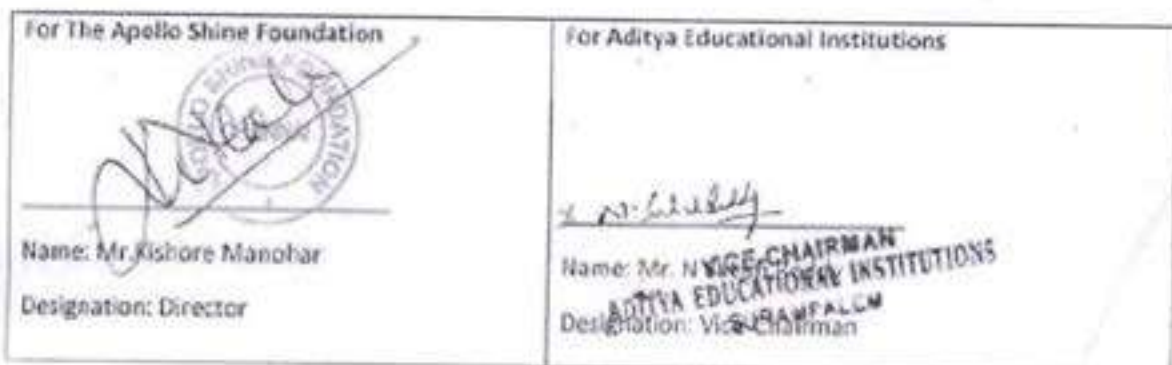 For The Apollo Shine Foundation
FOUNDATION
Name: Mr.Kishore Manohar
Designation: Director
For Aditya Educational Institutions
Name: Mr. N
VICE-CHAIRMAN
ADITYA EDUCATIONAL INSTITUTIONS
SURAMPALEM
Designation: Vice Chairman